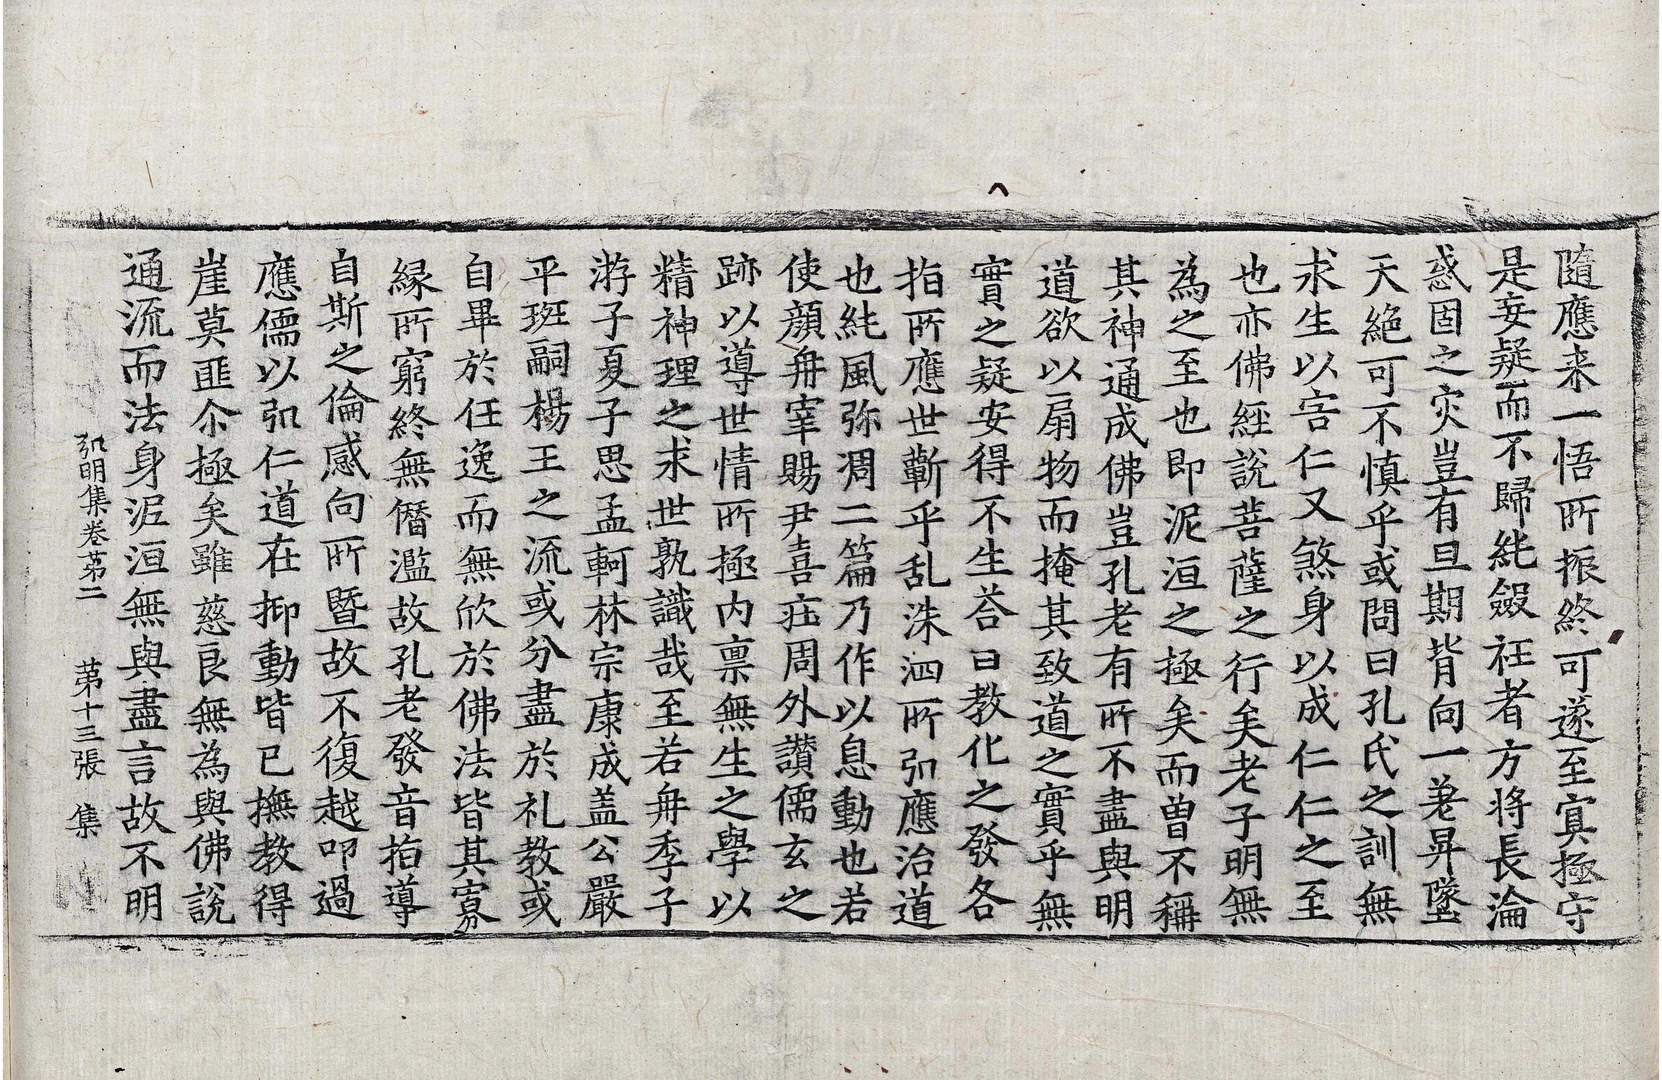 隨應来一悟所振終可遂至寘極守
是妄疑而不歸純斂枉者方将長淪
惑固之灾豈有旦期背向一差昇墜
天絶可不慎乎或問曰孔氏之訓無
求生以害仁又煞身以成仁仁之至
也亦佛經說菩薩之行矣老子明無
為之至也即泥洹之極矣而曾不稱
其神通成佛豈孔老有所不盡與明
道欲以扇物而掩其致道之實乎無
實之疑安得不生荅曰教化之發各
指所應世蘄乎乱洙泗所弘應治道
也純風弥凋二篇乃作以息動也若
使顔冉宰賜尹喜莊周外讃儒玄之
跡以導世情所極内禀無生之學以
精神理之求世孰識哉至若冉季子
游子夏子思孟軻林宗康成盖公嚴
平班嗣楊王之流或分盡於礼教或
自畢於任逸而無欣於佛法皆其寡
縁所窮終無僭濫故孔老發音指導
自斯之倫感向所暨故不復越叩過
應儒以弘仁道在抑動皆已撫教得
崖莫匪尒極矣雖慈良無為與佛說
通流而法身泥洹無與盡言故不明
弘明集卷苐二　苐十三張　集